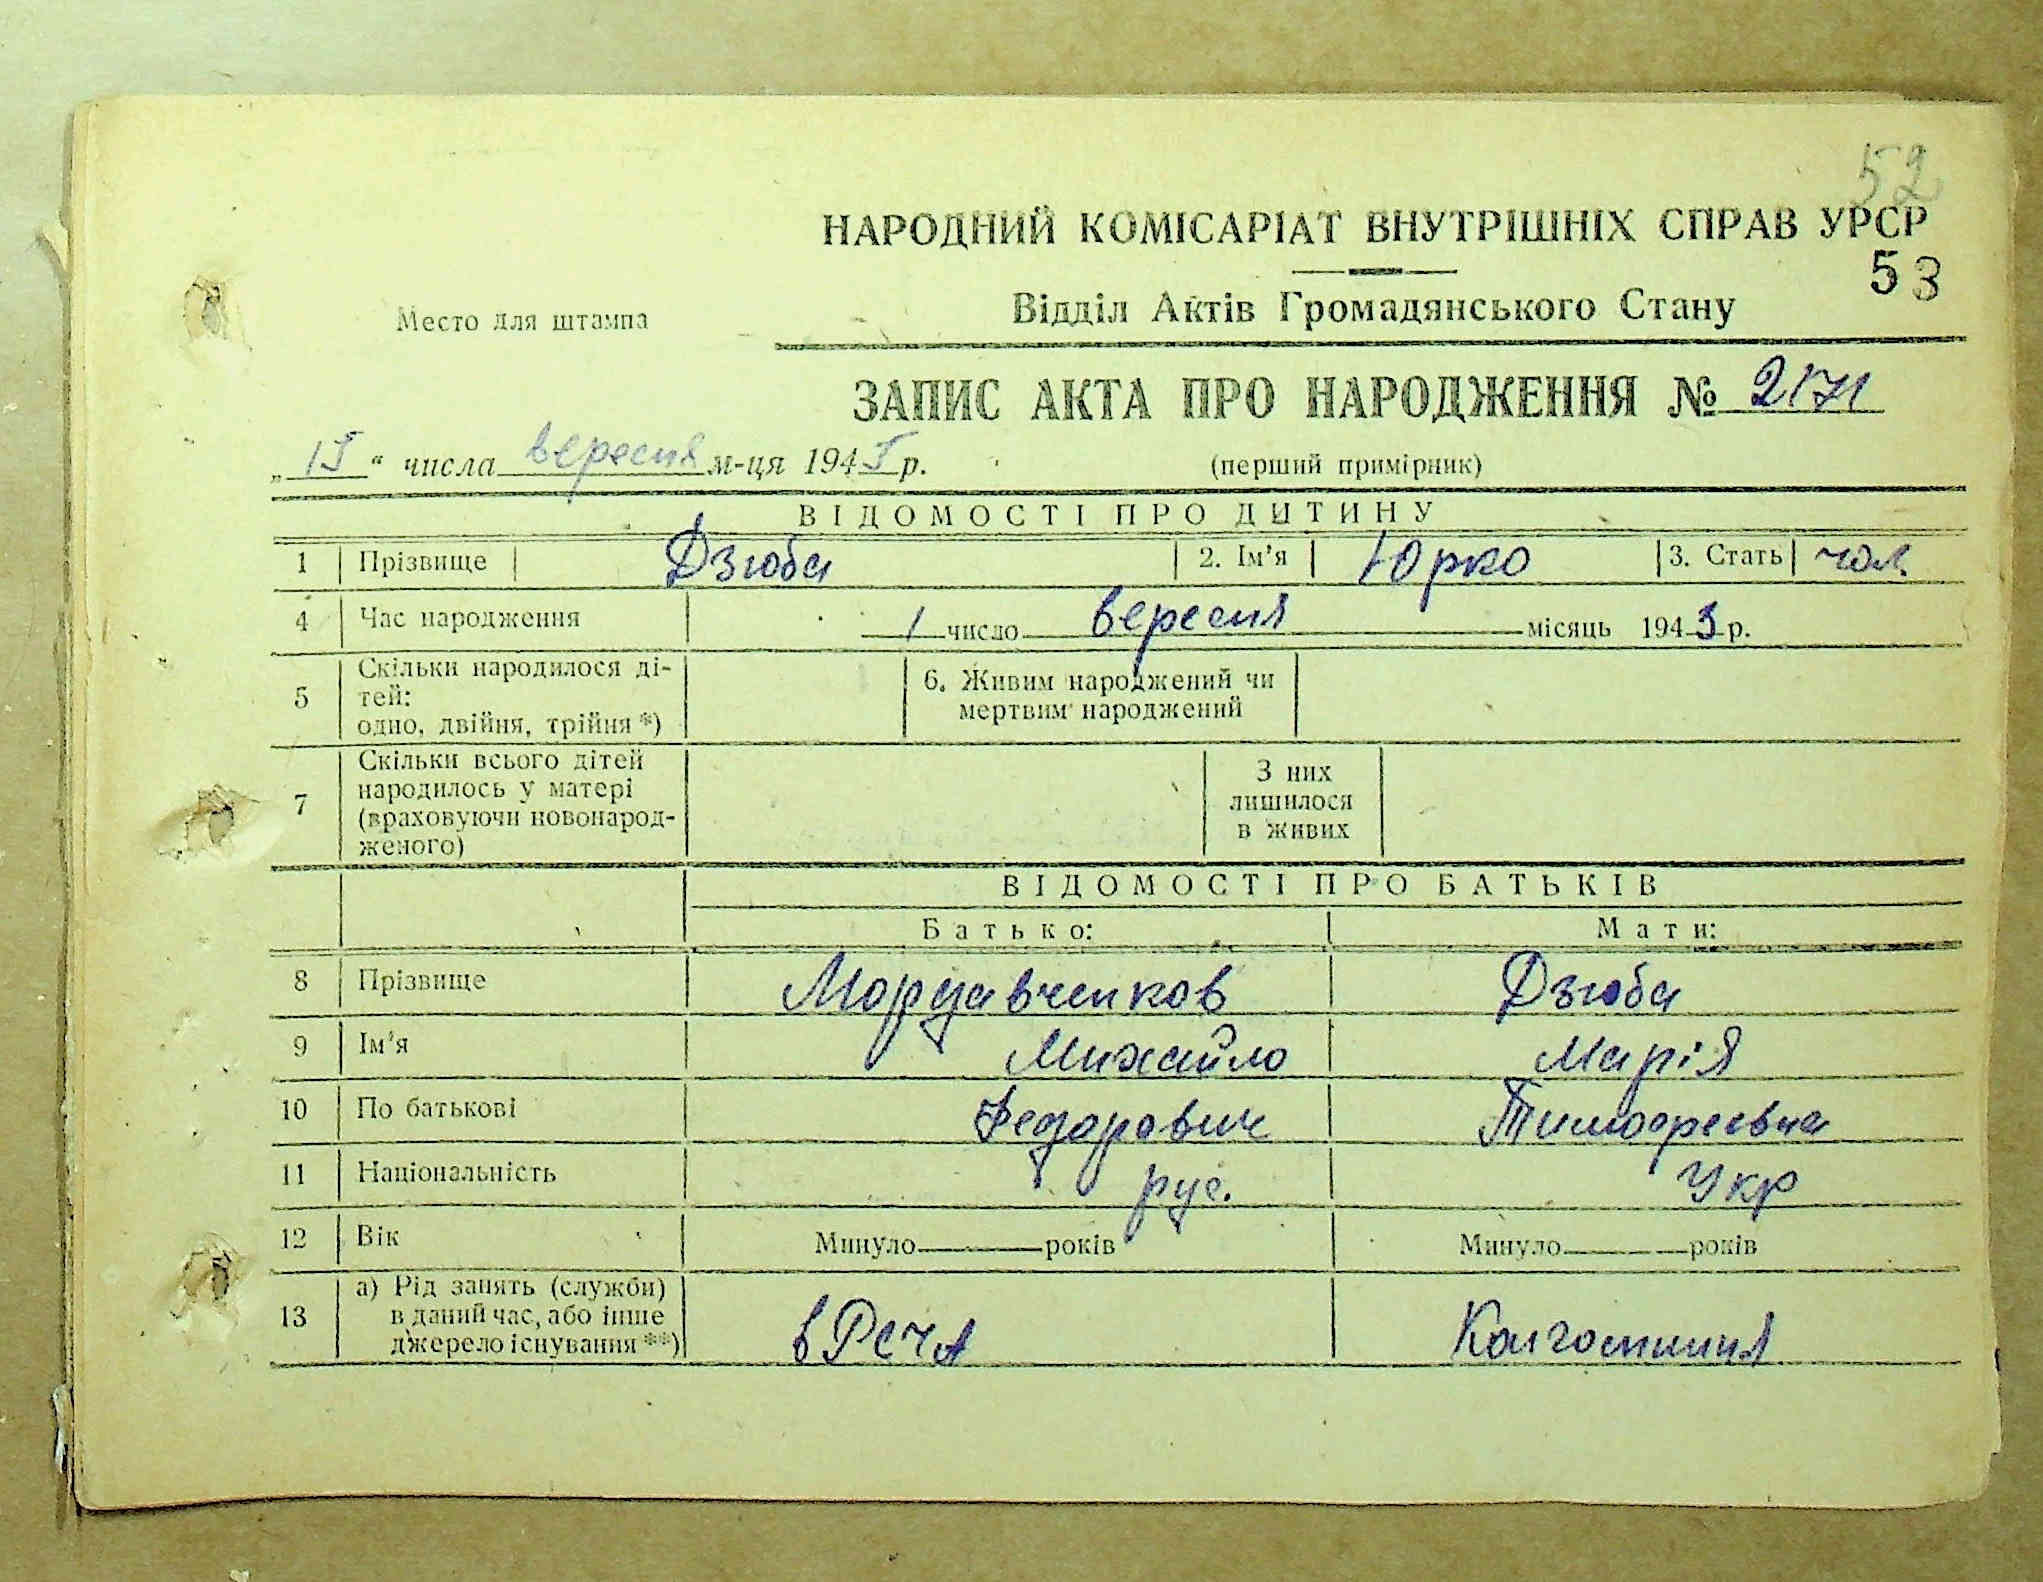 52
НАРОДНИЙ КОМІСАРІАТ ВНУТРІШНІХ СПРАВ УРСР
53
Место для штампа
Відділ Актів Громадянського Стану
ЗАПИС АКТА ПРО НАРОДЖЕННЯ № 2171
„15“ числа вересня м-ця 1945 р. (перший примірник)
ВІДОМОСТІ ПРО ДИТИНУ
1 Прізвище Дзюба 2. Ім'я Юрко 3. Стать чол.
4 Час народження 1 число вересня місяць 1943 р.
5 Скільки народилося ді-
тей:
одно, двійня, трійня *)
6. Живим народжений чи
мертвим народжений
7 Скільки всього дітей
народилось у матері
(враховуючи новонарод-
женого)
З них
лишилося
в живих
ВІДОМОСТІ ПРО БАТЬКІВ
Батько: Мати:
8 Прізвище Мордавченков Дзюба
9 Ім'я Михайло Марія
10 По батькові Федорович Тимофеевна
11 Національність рус. Укр
12 Вік Минуло років Минуло років
13 а) Рід занять (служби)
в даний час, або інше
джерело існування **)
в РСЧА Колгоспниця